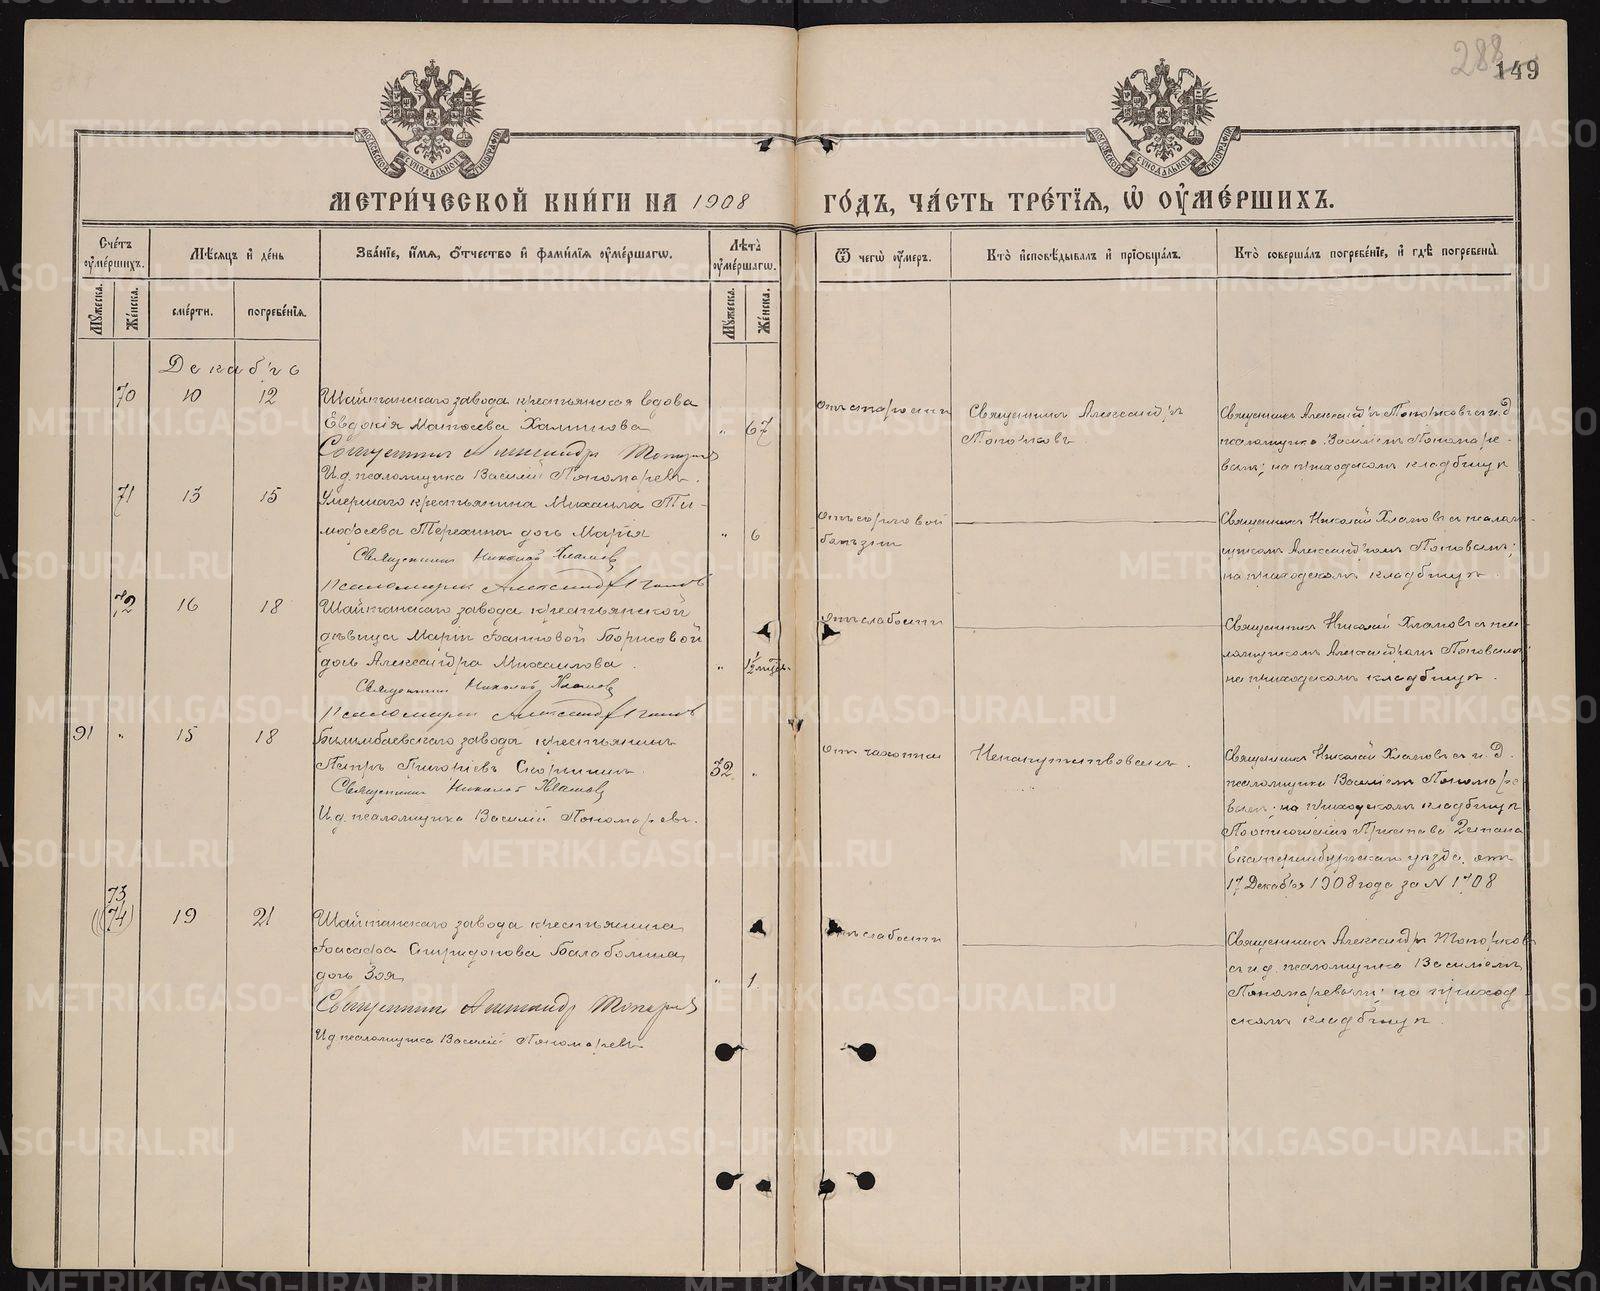 288
149
МЕТРИ́ЧЕСКОЙ КНИ́ГИ НА 1908
ГО́ДЪ, ЧА́СТЬ ТРЕ́ТІѦ, Ѡ ОУ҆МЕ́РШИХЪ.
Сче́тъ оу҆ме́ршихъ.
Мѣ́сяцъ и҆ де́нь
Зва́нїе, и҆́мѧ, ѻ҆́тчество и҆ фами́лїѧ оу҆ме́ршагѡ.
Лѣта̀ оу҆ме́ршагѡ.
Ѿ чегѡ̀ оу҆́меръ.
Кто̀ и҆сповѣ́дывалъ и҆ прїѡбща́лъ.
Кто̀ соверша́лъ погребе́нїе, и҆ гдѣ̀ погребены̀.
Мꙋ́жеска.
Же́нска.
сме́рти.
погребе́нїѧ.
Мꙋ́жеска.
Же́нска.
Декабрь
70 10 12 Шайтанскаго завода крестьянская вдова
Евдокія Матѳеева Халтикова " 67
Священникъ Александръ Топорковъ
И.д. псаломщика Василій Пономаревъ.
Отъ старости
Священникъ Александръ
Топорковъ.
Священникъ Александръ Топорковъ с и.д
псаломщика Василіемъ Пономаре-
вымъ; на приходскомъ кладбищѣ
71 13 15 Умершаго крестьянина Михаила Ти-
моѳеева Терехина дочь Марія " 6
Священникъ Николай Хламовъ
Псаломщикъ Александръ Поповъ
Отъ горловой
болѣзни
Священникъ Николай Хламовъ с псалом-
щикомъ Александромъ Поповымъ;
на приходскомъ кладбищѣ.
72 16 18 Шайтанскаго завода крестьянской
дѣвицы Маріи Борисовой
дочь Александра Михаилова. " 1½ мѣсяц.
Священникъ Николай Хламовъ
Псаломщикъ Александръ Поповъ
Отъ слабости
Священникъ Николай Хламовъ с пса-
ломщикомъ Александромъ Поповымъ
на приходскомъ кладбищѣ.
91 " 15 18 Билимбаевскаго завода крестьянинъ
Петръ Григоріевъ Скорынинъ. 32. "
Священникъ Николай Хламовъ
И.д. псаломщика Василій Пономаревъ.
Отъ чахотки
Ненапутствованъ.
Священникъ Николай Хламовъ с и.д.
псаломщика Василіемъ Пономаре
вымъ; на приходскомъ кладбищѣ
По отношенію Пристава 2 стана
Екатеринбургскаго уѣзда, отъ
17 Декабря 1908 года за N 1708
73
(74) 19 21 Шайтанскаго завода крестьянина
Іоасафа Спиридонова Балабонина
дочь Зоя " 1
Священникъ Александръ Топорковъ
И.д псаломщика Василій Пономаревъ
Отъ слабости
Священникъ Александръ Топорков
с и.д. псаломщика Василіемъ
Пономаревымъ; на приход
скомъ кладбищѣ.
METRIKI.GASO-URAL.RU